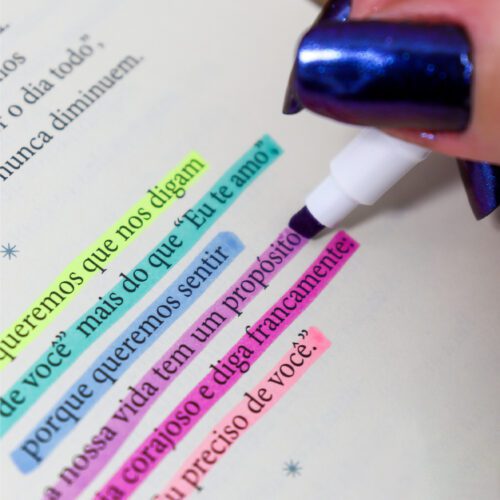 r o dia todo",
nunca diminuem.
queremos que nos digam
de você" mais do que "Eu te amo",
porque queremos sentir
a nossa vida tem um propósito
a corajoso e diga francamente:
u preciso de você."